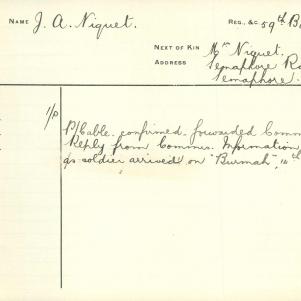 NAME J. A. Niquet. REG., &C 59th B
NEXT OF KIN Mrs Niquet.
ADDRESS Semaphore R
Semaphore.
1/P P/Cable. confirmed. forwarded Comm
Reply from Commis. Information
as soldier arrived on "Burmah",